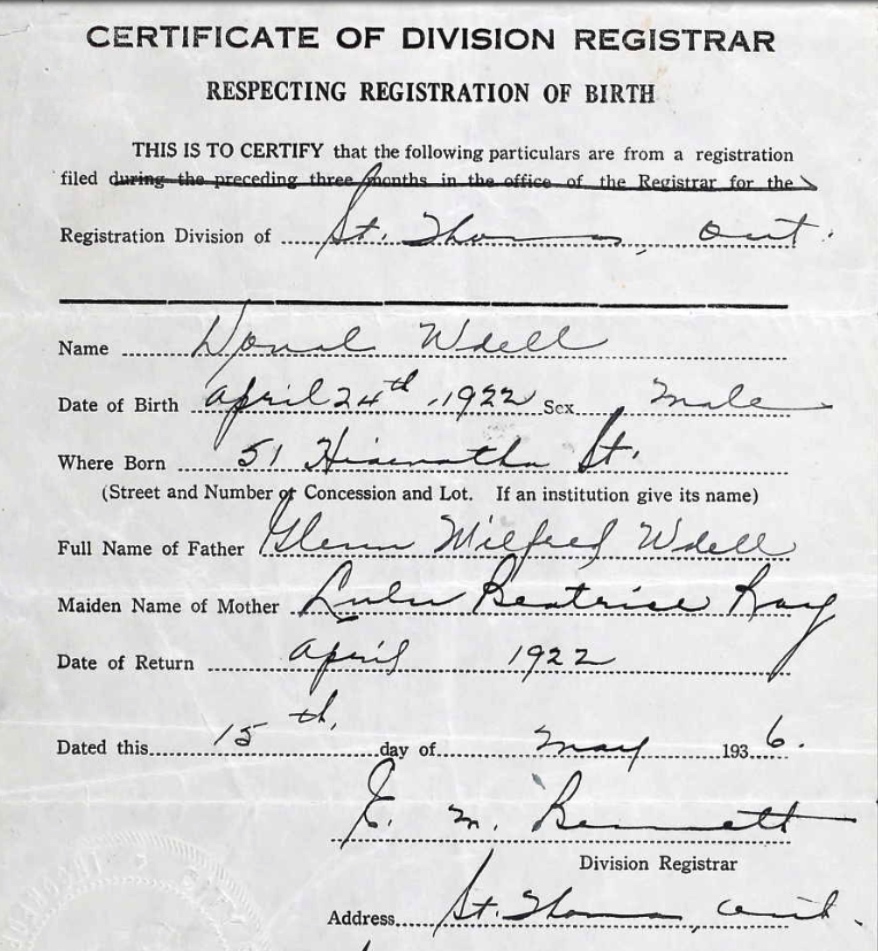 CERTIFICATE OF DIVISION REGISTRAR
RESPECTING REGISTRATION OF BIRTH
THIS IS TO CERTIFY that the following particulars are from a registration
filed during the preceding three months in the office of the Registrar for the
Registration Division of St. Thomas, Ont.
Name Donal Udell
Date of Birth April 24th, 1922 Sex Male
Where Born 51 Hiawatha St.
(Street and Number or Concession and Lot. If an institution give its name)
Full Name of Father Glenn Wilfred Udell
Maiden Name of Mother Lulu Beatrice Ray
Date of Return April 1922
Dated this 15th, day of May 1936.
M. Bennett
Division Registrar
Address St. Thomas, Ont.